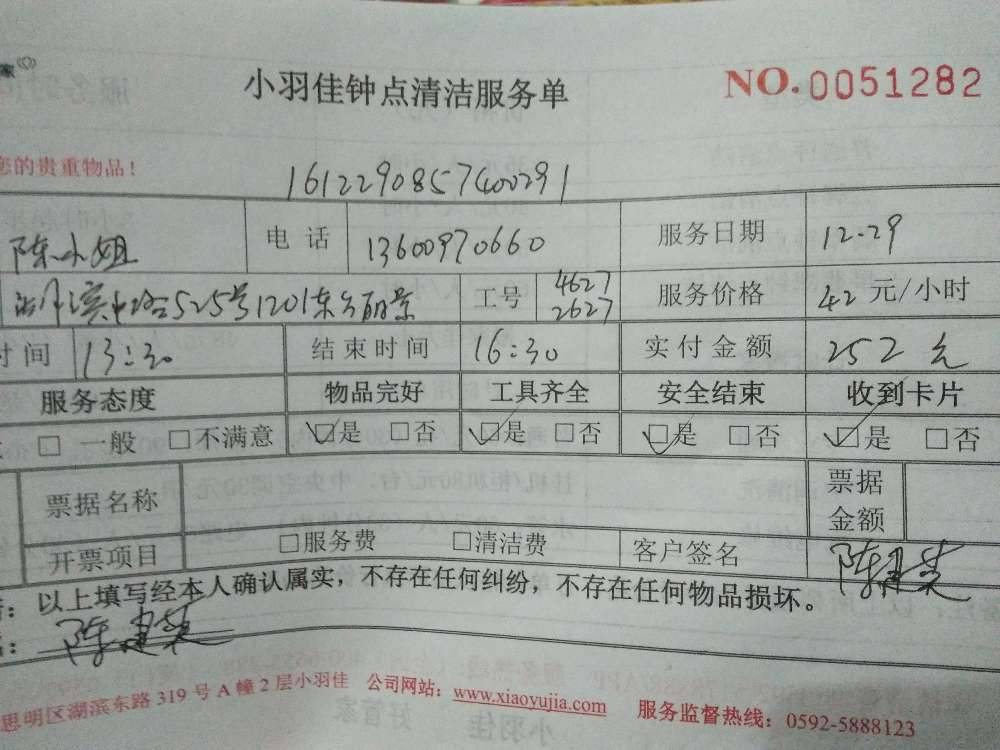 家
小羽佳钟点清洁服务单 NO.0051282
您的贵重物品!
1612290857400291
陈小姐 电话 13600970660 服务日期 12-29
湖滨中路525号1201东方丽景 工号 4627 2627 服务价格 42元/小时
时间 13:30 结束时间 16:30 实付金额 252元
服务态度 物品完好 工具齐全 安全结束 收到卡片
□ 一般 □不满意 ☑是 □否 ☑是 □否 ☑是 □否 ☑是 □否
票据名称 票据金额
开票项目 □服务费 □清洁费 客户签名 陈建英
: 以上填写经本人确认属实，不存在任何纠纷，不存在任何物品损坏。
: 陈建英
思明区湖滨东路319号A幢2层小羽佳 公司网站：www.xiaoyujia.com 服务监督热线：0592-5888123